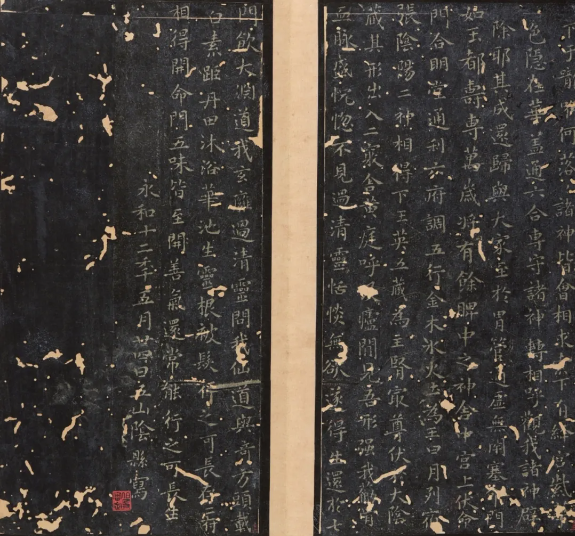 下于喉嚨何落諸神皆會相求索下有絳宮紫
色隱在華蓋通六合專守諸神轉相呼觀我諸神辟
除耶其成還歸與大家至於胃管通虛無閉塞命門
如玉都壽專萬歲將有餘脾中之神舍中宮上伏命
門合明堂通利六府調五行金木水火土為王日月列宿
張陰陽二神相得下玉英五藏為主腎最尊伏於大陰
藏其形出入二竅舍黃庭呼吸廬間見吾形强我筋骨
血脈盛恍惚不見過清靈恬惔無欲遂得生還於七
門飲大淵道我玄雍過清靈問我仙道與奇方頭戴
白素距丹田沐浴華池生靈根被髮行之可長存二府
相得開命門五味皆至開善氣還常能行之可長生
永和十二年五月廿四日五山陰縣寫